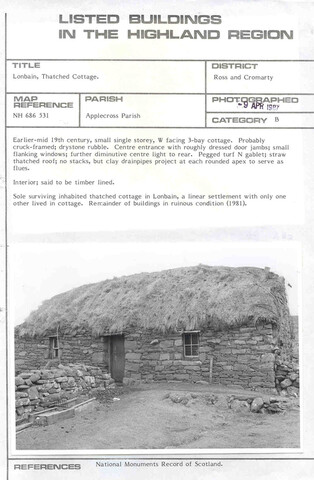 LISTED BUILDINGS
IN THE HIGHLAND REGION
TITLE
Lonbain, Thatched Cottage.
DISTRICT
Ross and Cromarty
MAP
REFERENCE
NH 686 531
PARISH
Applecross Parish
PHOTOGRAPHED
-9 APR 1987
CATEGORY B
Earlier-mid 19th century, small single storey, W facing 3-bay cottage. Probably
cruck-framed; drystone rubble. Centre entrance with roughly dressed door jambs; small
flanking windows; further diminutive centre light to rear. Pegged turf N gablet; straw
thatched roof; no stacks, but clay drainpipes project at each rounded apex to serve as
flues.
Interior; said to be timber lined.
Sole surviving inhabited thatched cottage in Lonbain, a linear settlement with only one
other lived in cottage. Remainder of buildings in ruinous condition (1981).
REFERENCES
National Monuments Record of Scotland.